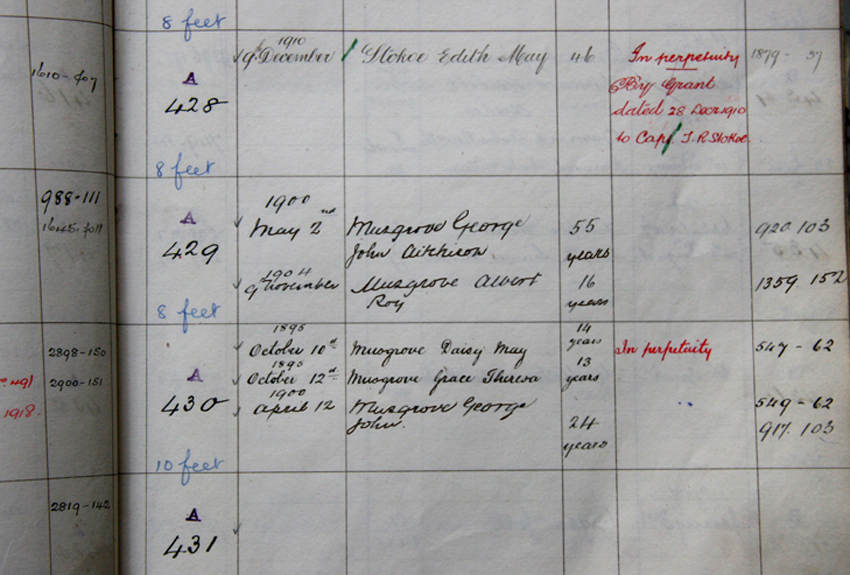 8 feet
1910
9th December Stokoe Edith May 46 In perpetuity 1879 - 37
1610 - 407
A
428
By Grant
dated 28 Decr 1910
to Capt J. R. Stokoe
8 feet
988-111
1645-
A
429
1900
May 2nd Musgrove George 55 920 103
John Aitchison years
1904
9 November Musgrove Albert 16 1359 152
Roy years
8 feet
1895
2898-150 October 10th Musgrove Daisy May 14 years In perpetuity 547-62
1895
2900-151 October 12th Musgrove Grace Theresa 13 years
A
430
1900
April 12 Musgrove George 549-62
John. 24 917. 103
years
1918.
10 feet
2819-142
A
431